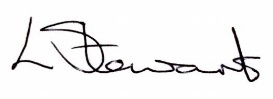 L Stewart